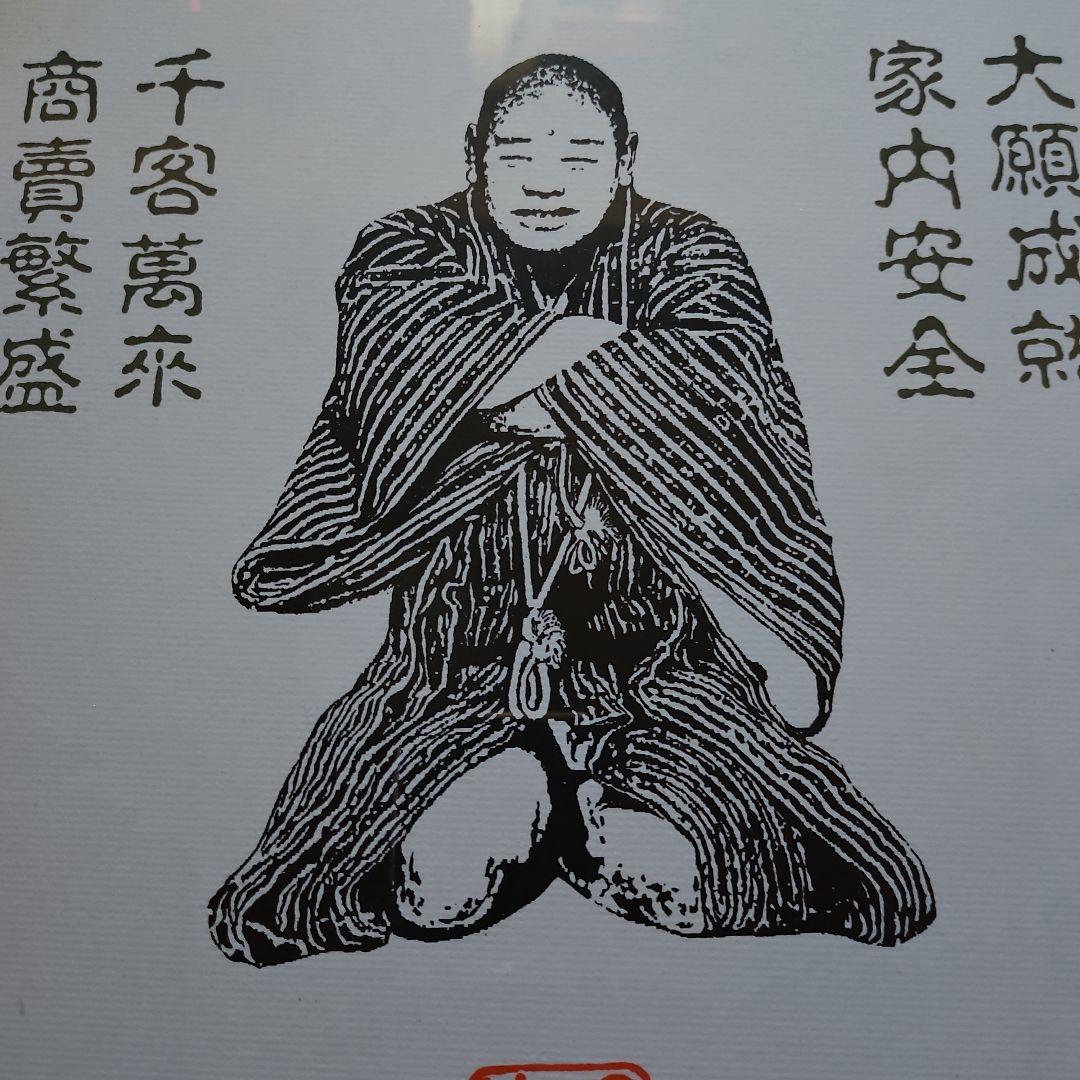 大願成就
家内安全
千客萬来
商賣繁盛